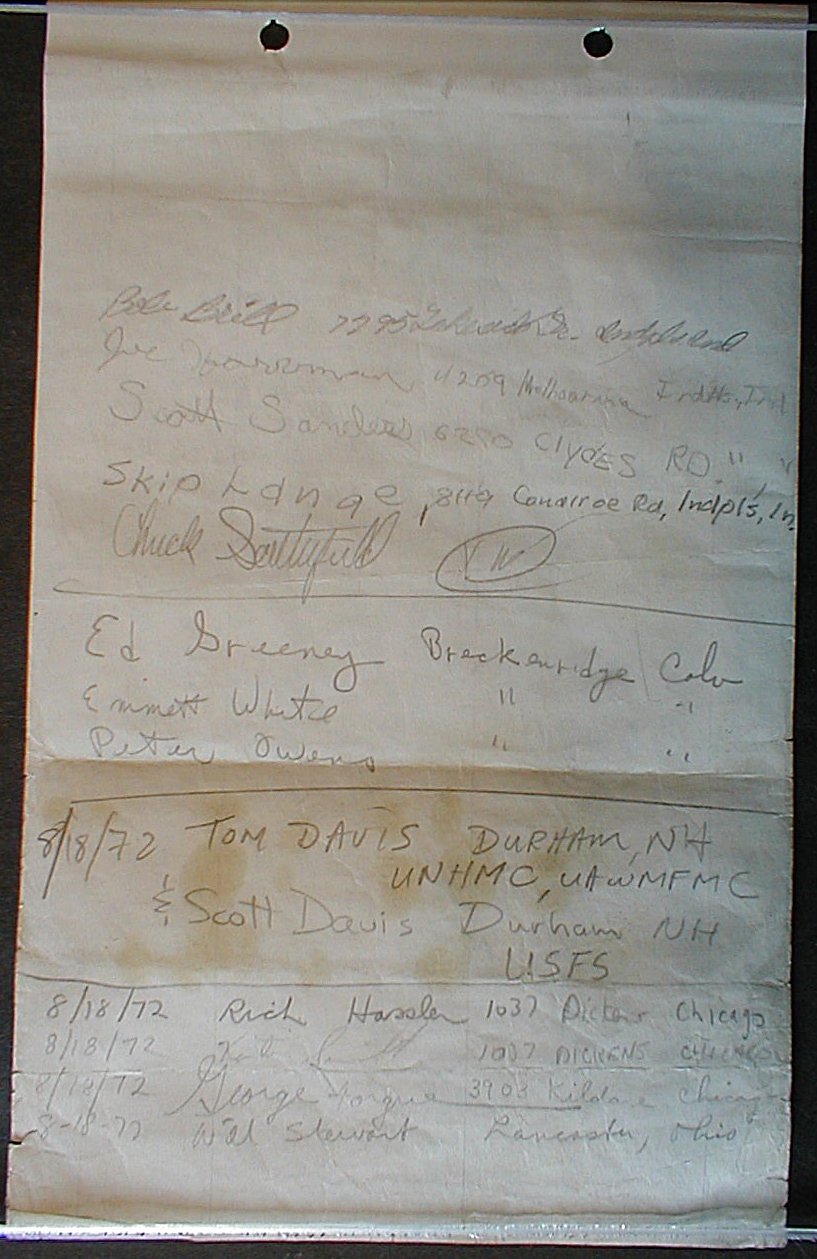 Bob Brill 7295
Joe 4209
Scott Sanders 6250 Clydes RD. " "
Skip Lange, 8119 Rd, Indpls, In.
Chuck Satterfield
Ed Greeney Breckenridge Colo
Emmett White " "
Peter Owens " "
8/18/72 TOM DAVIS DURHAM, NH
UNHMC, UAWMFMC
& Scott Davis Durham NH
USFS
8/18/72 Rich Hassler 1037 Dickens Chicago
8/18/72 1037 DICKENS CHICAGO
8/18/72 George 3903 Kildare Chicago
8-18-72 Will Stewart Lancaster, Ohio